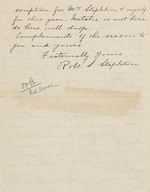 scription for Mrs Stapleton & myself
for this year. Natalie is not here
so hers will drop.
Compliments of the season to
you and yours.
Fraternally Yours
Robt. S. Stapleton